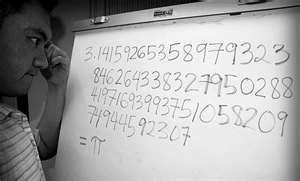 3.14159265358979323
84626433832795028​8
41971693993751058209
74944592307
= π